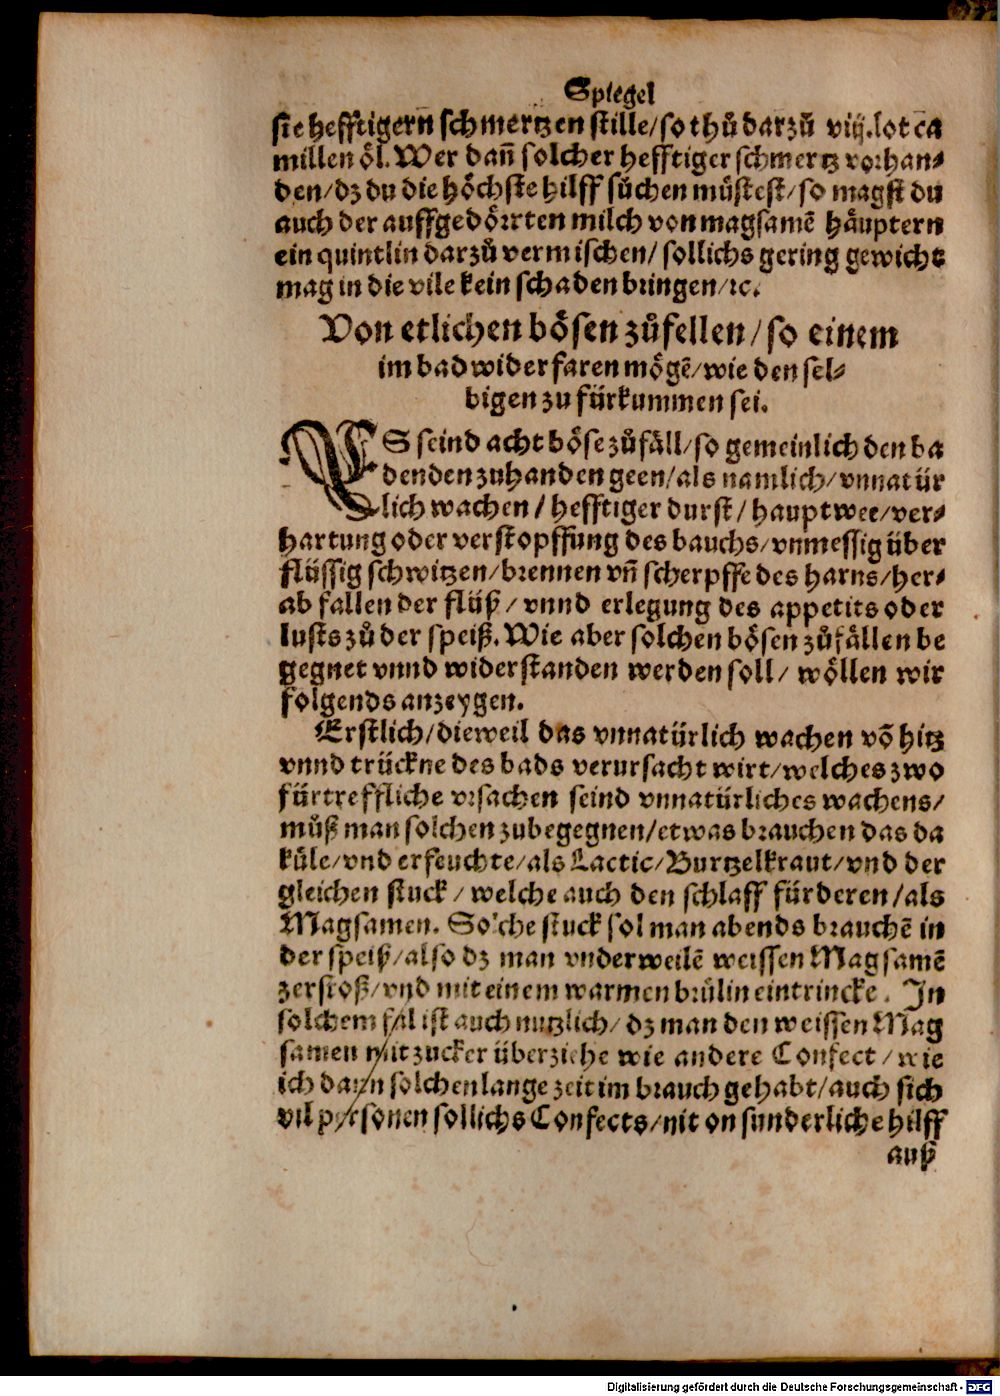 Spiegel
ste hefftigern schmertzen stille/so thů darzů viij.lot ca
millen öl. Wer dañ solcher hefftiger schmertz vorhan⸗
den/dz du die höchste hilff sůchen můstest/so magst du
auch der auffgedörrten milch von magsamē häuptern
ein quintlin darzů vermischen/ sollichs gering gewicht
mag in die vile kein schaden bringen/ꝛc.
Von etlichen bösen zůfellen/so einem
im bad widerfaren mögē/wie den sel⸗
bigen zu fürkummen sei.
ES seind acht böse zůfäll/so gemeinlich den ba
denden zuhanden geen/als namlich/vnnatür
lich wachen/ hefftiger durst/ hauptwee/ver⸗
hartung oder verstopffung des bauchs/vnmessig über
flüssig schwitzen/brennen vñ scherpffe des harns/her⸗
ab fallen der flüß/ vnnd erlegung des appetits oder
lusts zů der speiß. Wie aber solchen bösen zůfällen be
gegnet vnnd widerstanden werden soll/ wöllen wir
folgends anzeygen.
Erstlich/dieweil das vnnatürlich wachen vō hitz
vnnd trückne des bads verursacht wirt/welches zwo
fürtreffliche vrsachen seind vnnatürliches wachens/
můß man solchen zubegegnen/etwas brauchen das da
küle/vnd erfeuchte/als Lactic/Burtzelkraut/vnd der
gleichen stuck/ welche auch den schlaff fürderen/als
Magsamen. Solche stuck sol man abends brauchē in
der speiß/also dz man vnderweilē weissen Magsamē
zerstoß/vnd mit einem warmen brülin eintrincke. In
solchem fal ist auch nutzlich/ dz man den weissen Mag
samen mit zucker überziehe wie andere Confect/wie
ich dann solchen lange zeit im brauch gehabt/auch sich
vil personen sollichs Confects/nit on sunderliche hilff
auß
Digitalisierung gefördert durch die Deutsche Forschungsgemeinschaft - DFG